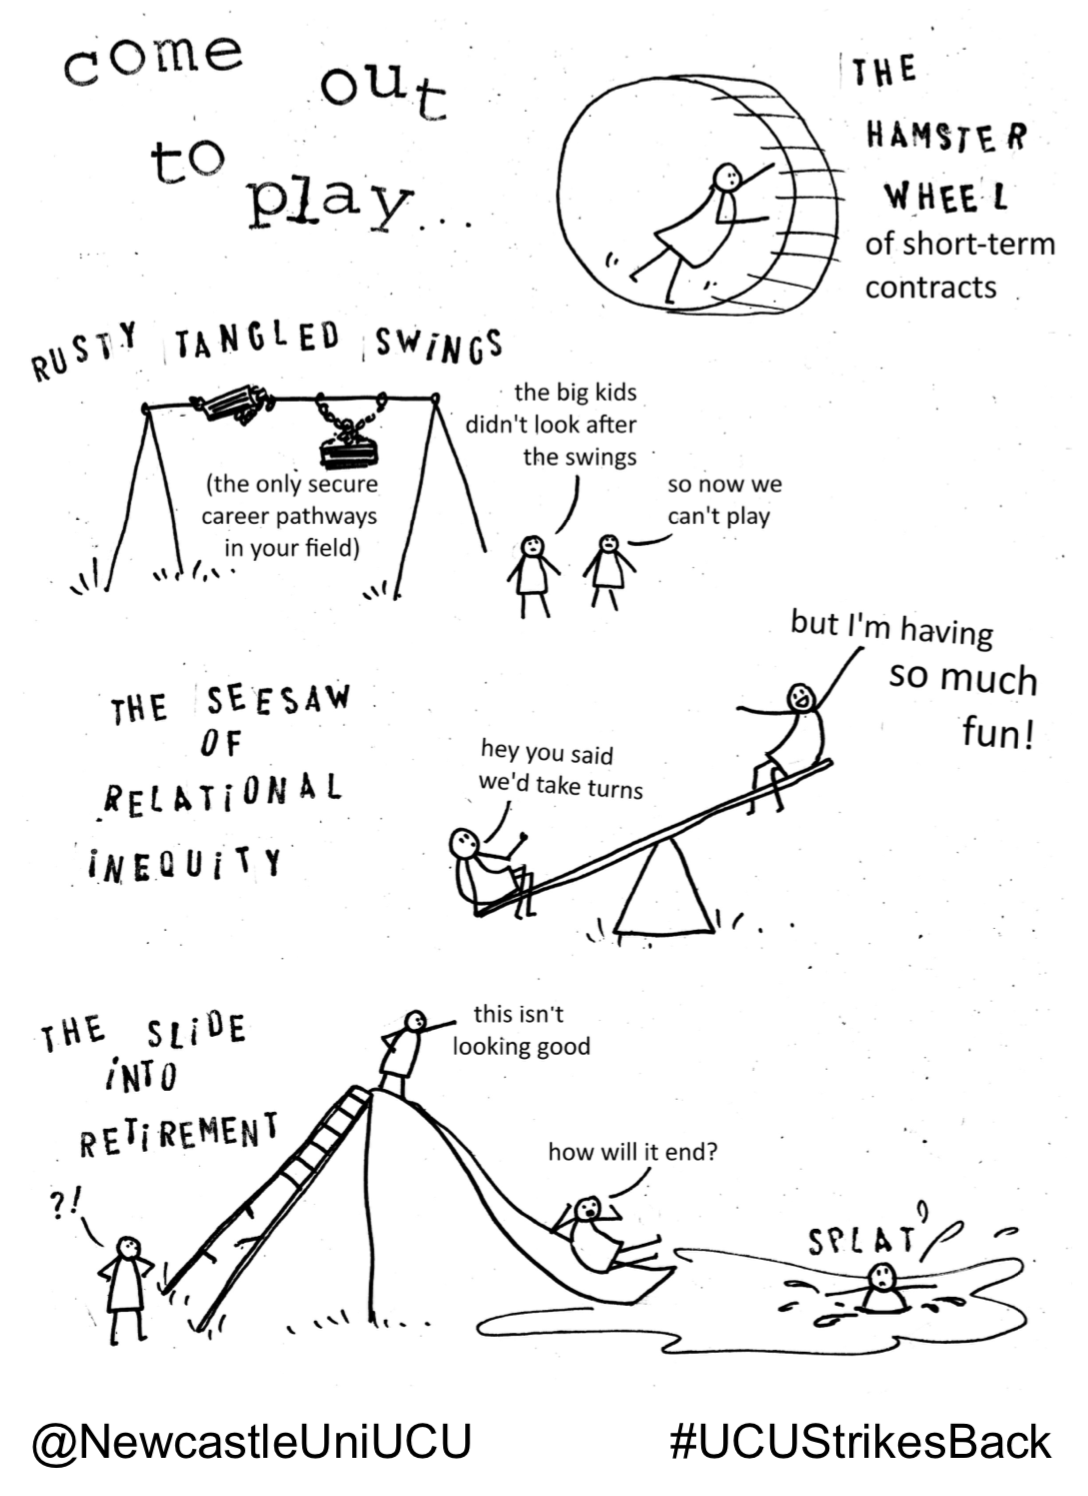 come out
to play...
THE
HAMSTER
WHEEL
of short-term
contracts
RUSTY TANGLED SWiNGS
the big kids
didn't look after
the swings
so now we
can't play
(the only secure
career pathways
in your field)
but I'm having
so much
fun!
THE SEESAW
OF
RELATiONAL
iNEQUiTY
hey you said
we'd take turns
THE SLiDE
iNTO
RETiREMENT
this isn't
looking good
how will it end?
?!
SPLAT
@NewcastleUniUCU
#UCUStrikesBack